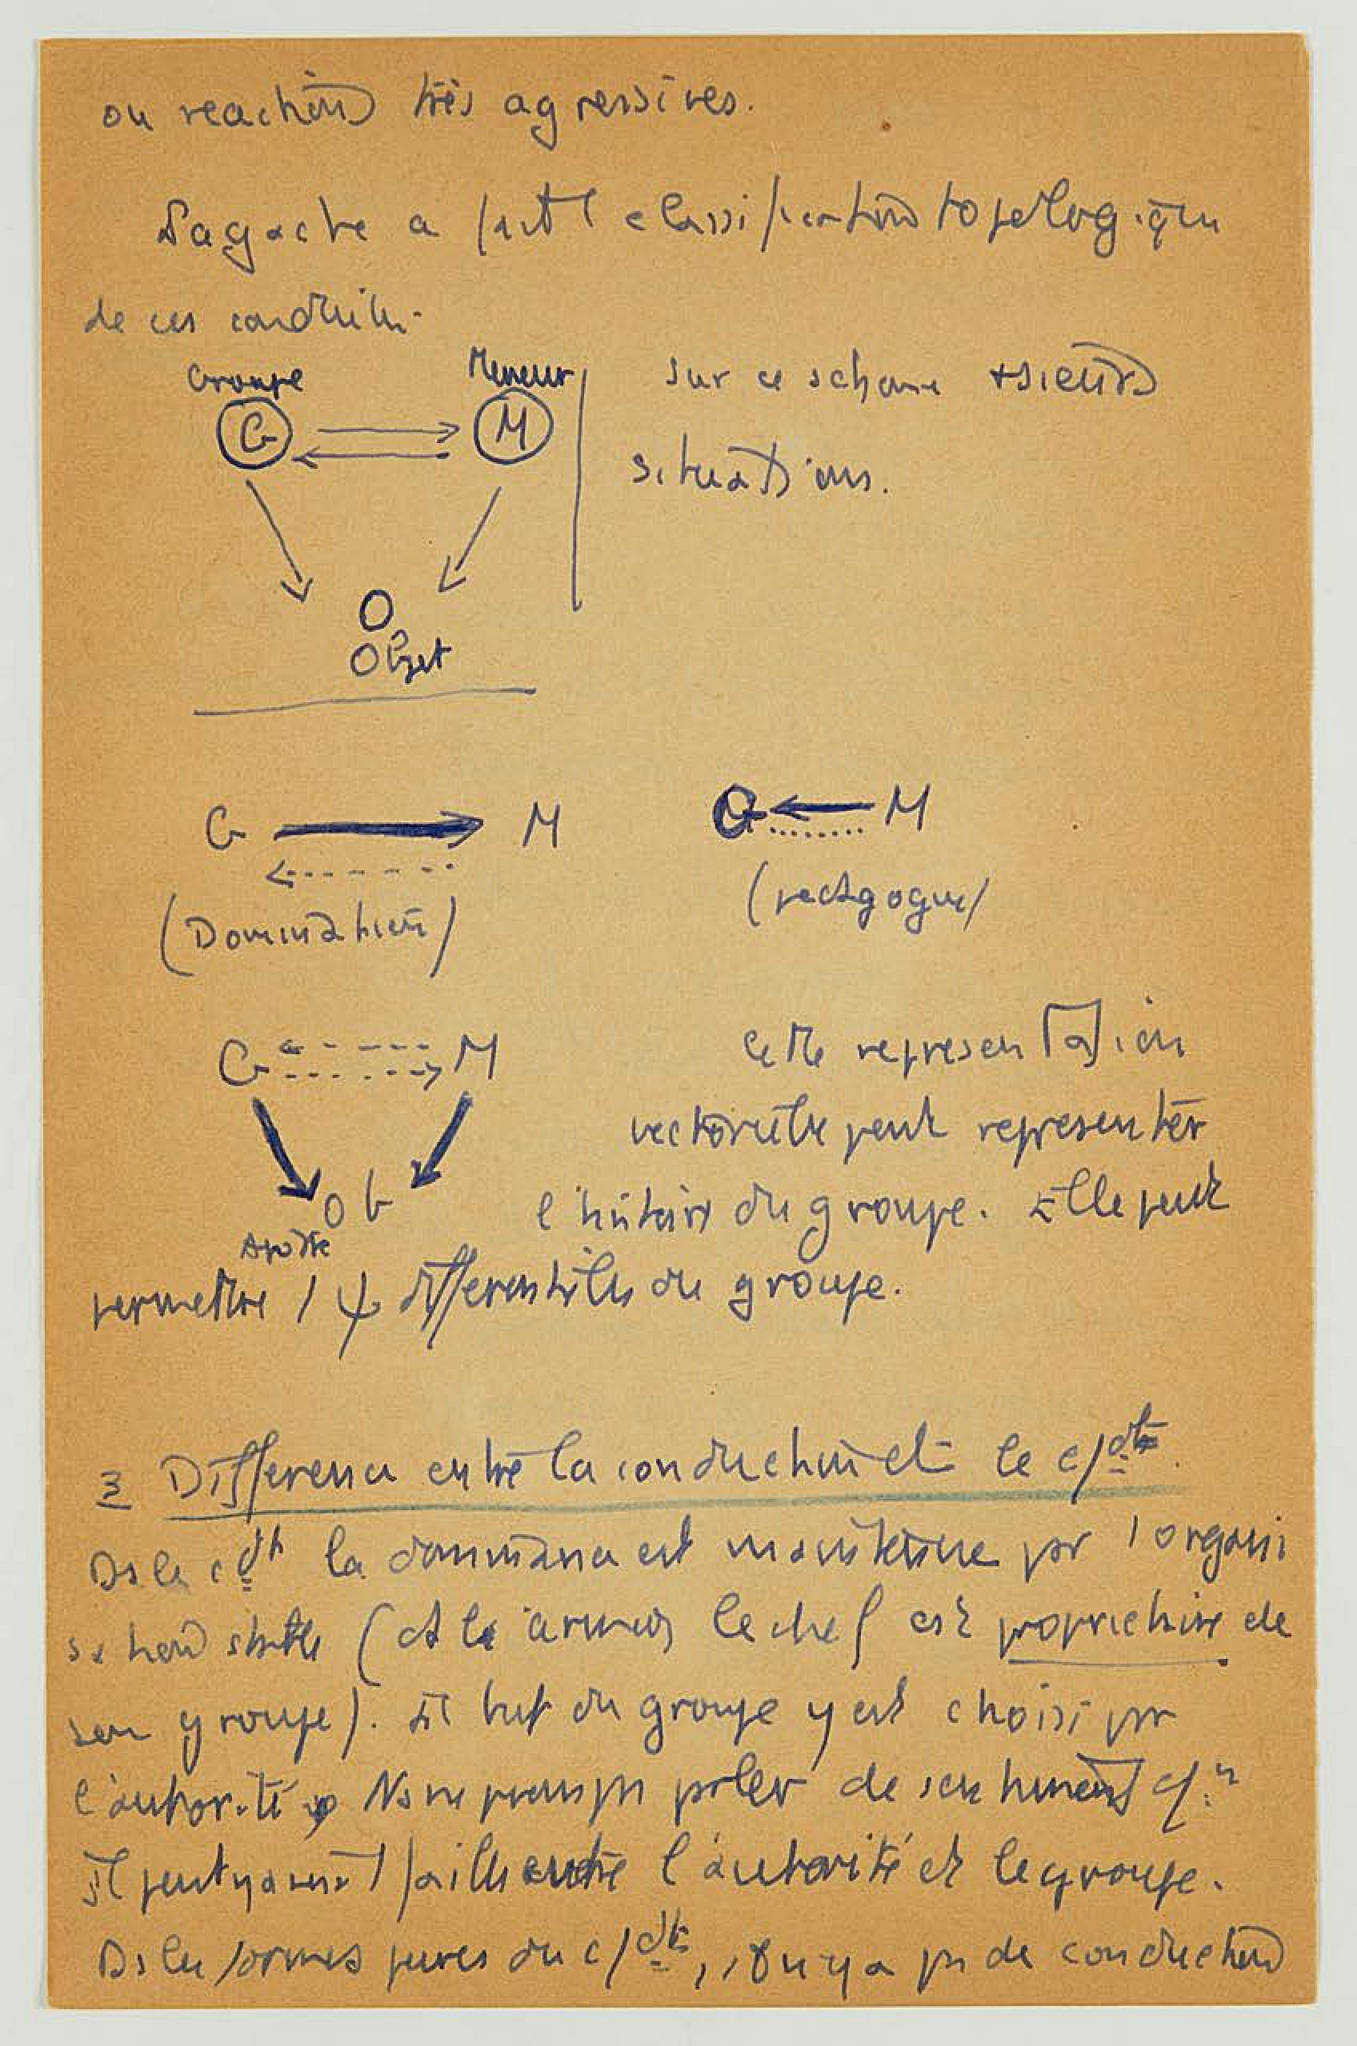 ou reactions très agressives.
Lagache a fait 1 classification topologique
de ces conduites.
Groupe Meneur
G M
sur ce schema +sieurs
situations.
O
Objet
G M
(Domination)
G M
(pedagogue)
G M
Ob
Apôtre
Cette representation
vectorielle peut representer
l'histoire du groupe. Elle peut
permettre 1 ψ differentielle du groupe.
3 Difference entre la conduction et le c/dt
Ds le c dt la dominance est maintenue par l'organi
sation stable (ds les armées le chef est proprietaire de
son groupe). Il but du groupe y est choisi par
l'autorité Ns ne pouvons pas parler de sentiments
Il peut y avoir 1 faille entre l'autorité et le groupe.
Ds les formes pures du c/dt, il n'y a pas de conduction